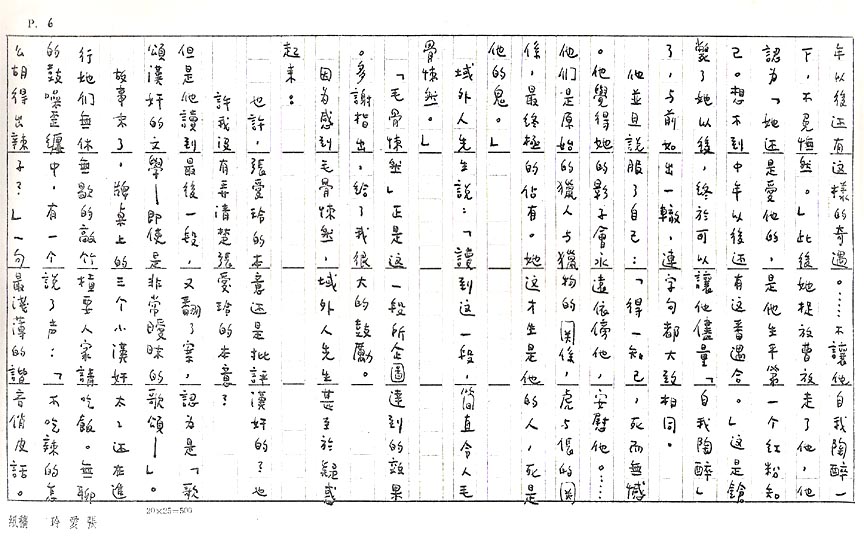 P. 6
年以後还有这樣的奇遇。……不讓他自我陶醉一
下，不免憮然。」此後她捉放曹放走了他，他
認为「她还是愛他的，是他生平第一个紅粉知
己。想不到中年以後还有这番遇合。」这是鎗
斃了她以後，終於可以讓他儘量「自我陶醉」
了，与前如出一轍，連字句都大致相同。
他並且説服了自己：「得一知己，死而無憾
。他覺得她的影子會永遠依傍他，安慰他。……
他们是原始的獵人与獵物的関係，虎与倀的関
係，最終極的佔有。她这才生是他的人，死是
他的鬼。」
域外人先生説：「讀到这一段，簡直令人毛
骨悚然。」
「毛骨悚然」正是这一段所企圖達到的效果
。多謝指出，给了我很大的鼓勵。
因为感到毛骨悚然，域外人先生甚至於疑惑
起来：
也許，張愛玲的本意还是批評漢奸的？也
許我没有弄清楚張愛玲的本意？
但是他讀到最後一段，又翻了案，認为是「歌
頌漢奸的文學——即使是非常曖昧的歌頌——」。
故事末了，牌桌上的三个小漢奸太太还在進
行她们無休無歇的敲竹槓要人家請吃飯。無聊
的鼓噪歪纏中，有一个説了声：「不吃辣的怎
么胡得出辣子？」一句最淺薄的諧音俏皮話。
20×25=500
張愛玲 稿紙